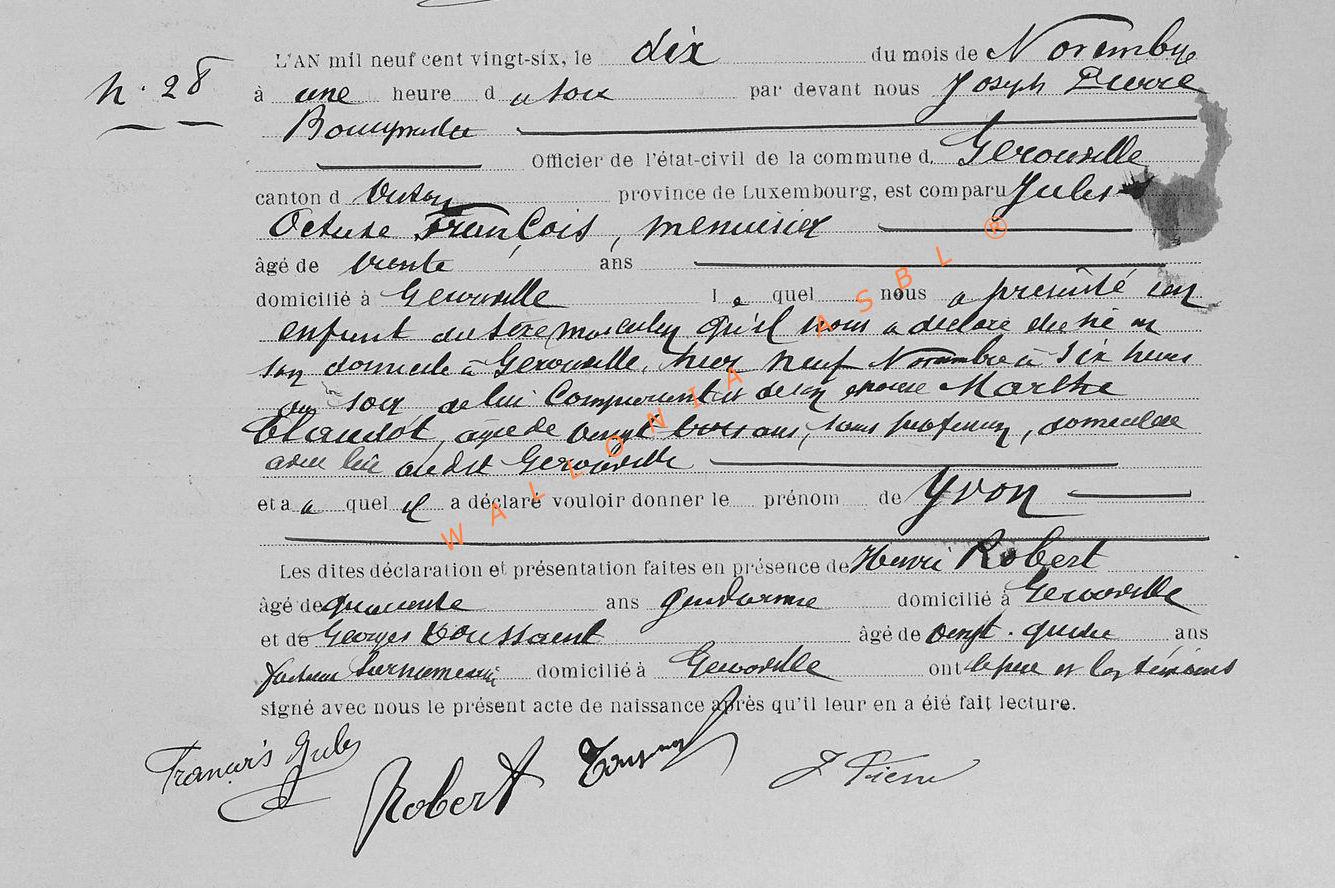 N. 28
L'AN mil neuf cent vingt-six, le dix du mois de Novembre
à une heure d u soir par devant nous Joseph Pierre
Bourgmestre
Officier de l'état-civil de la commune d. Gérouville
canton d Virton province de Luxembourg, est comparu Jules
Octave François, menuisier
âgé de trente ans
domicilié à Gérouville l e quel nous a présenté un
enfant du sexe masculin qu'il nous a déclaré être né en
son domicile à Gérouville, hier neuf Novembre à six heures
du soir de lui Comparant et de son épouse Marthe
Claudot, agée de vingt trois ans, sans profession, domiciliée
avec lui audit Gérouville
et a u quel il a déclaré vouloir donner le prénom de Yvon
Les dites déclaration et présentation faites en présence de Henri Robert
âgé de quarante ans gendarme domicilié à Gérouville
et de Georges Toussaint âgé de vingt-quatre ans
facteur surnuméraire domicilié à Gérouville ont le père et les témoins
signé avec nous le présent acte de naissance après qu'il leur en a été fait lecture.
François Jules
Robert
J Pierre
WALLONIA ASBL ®